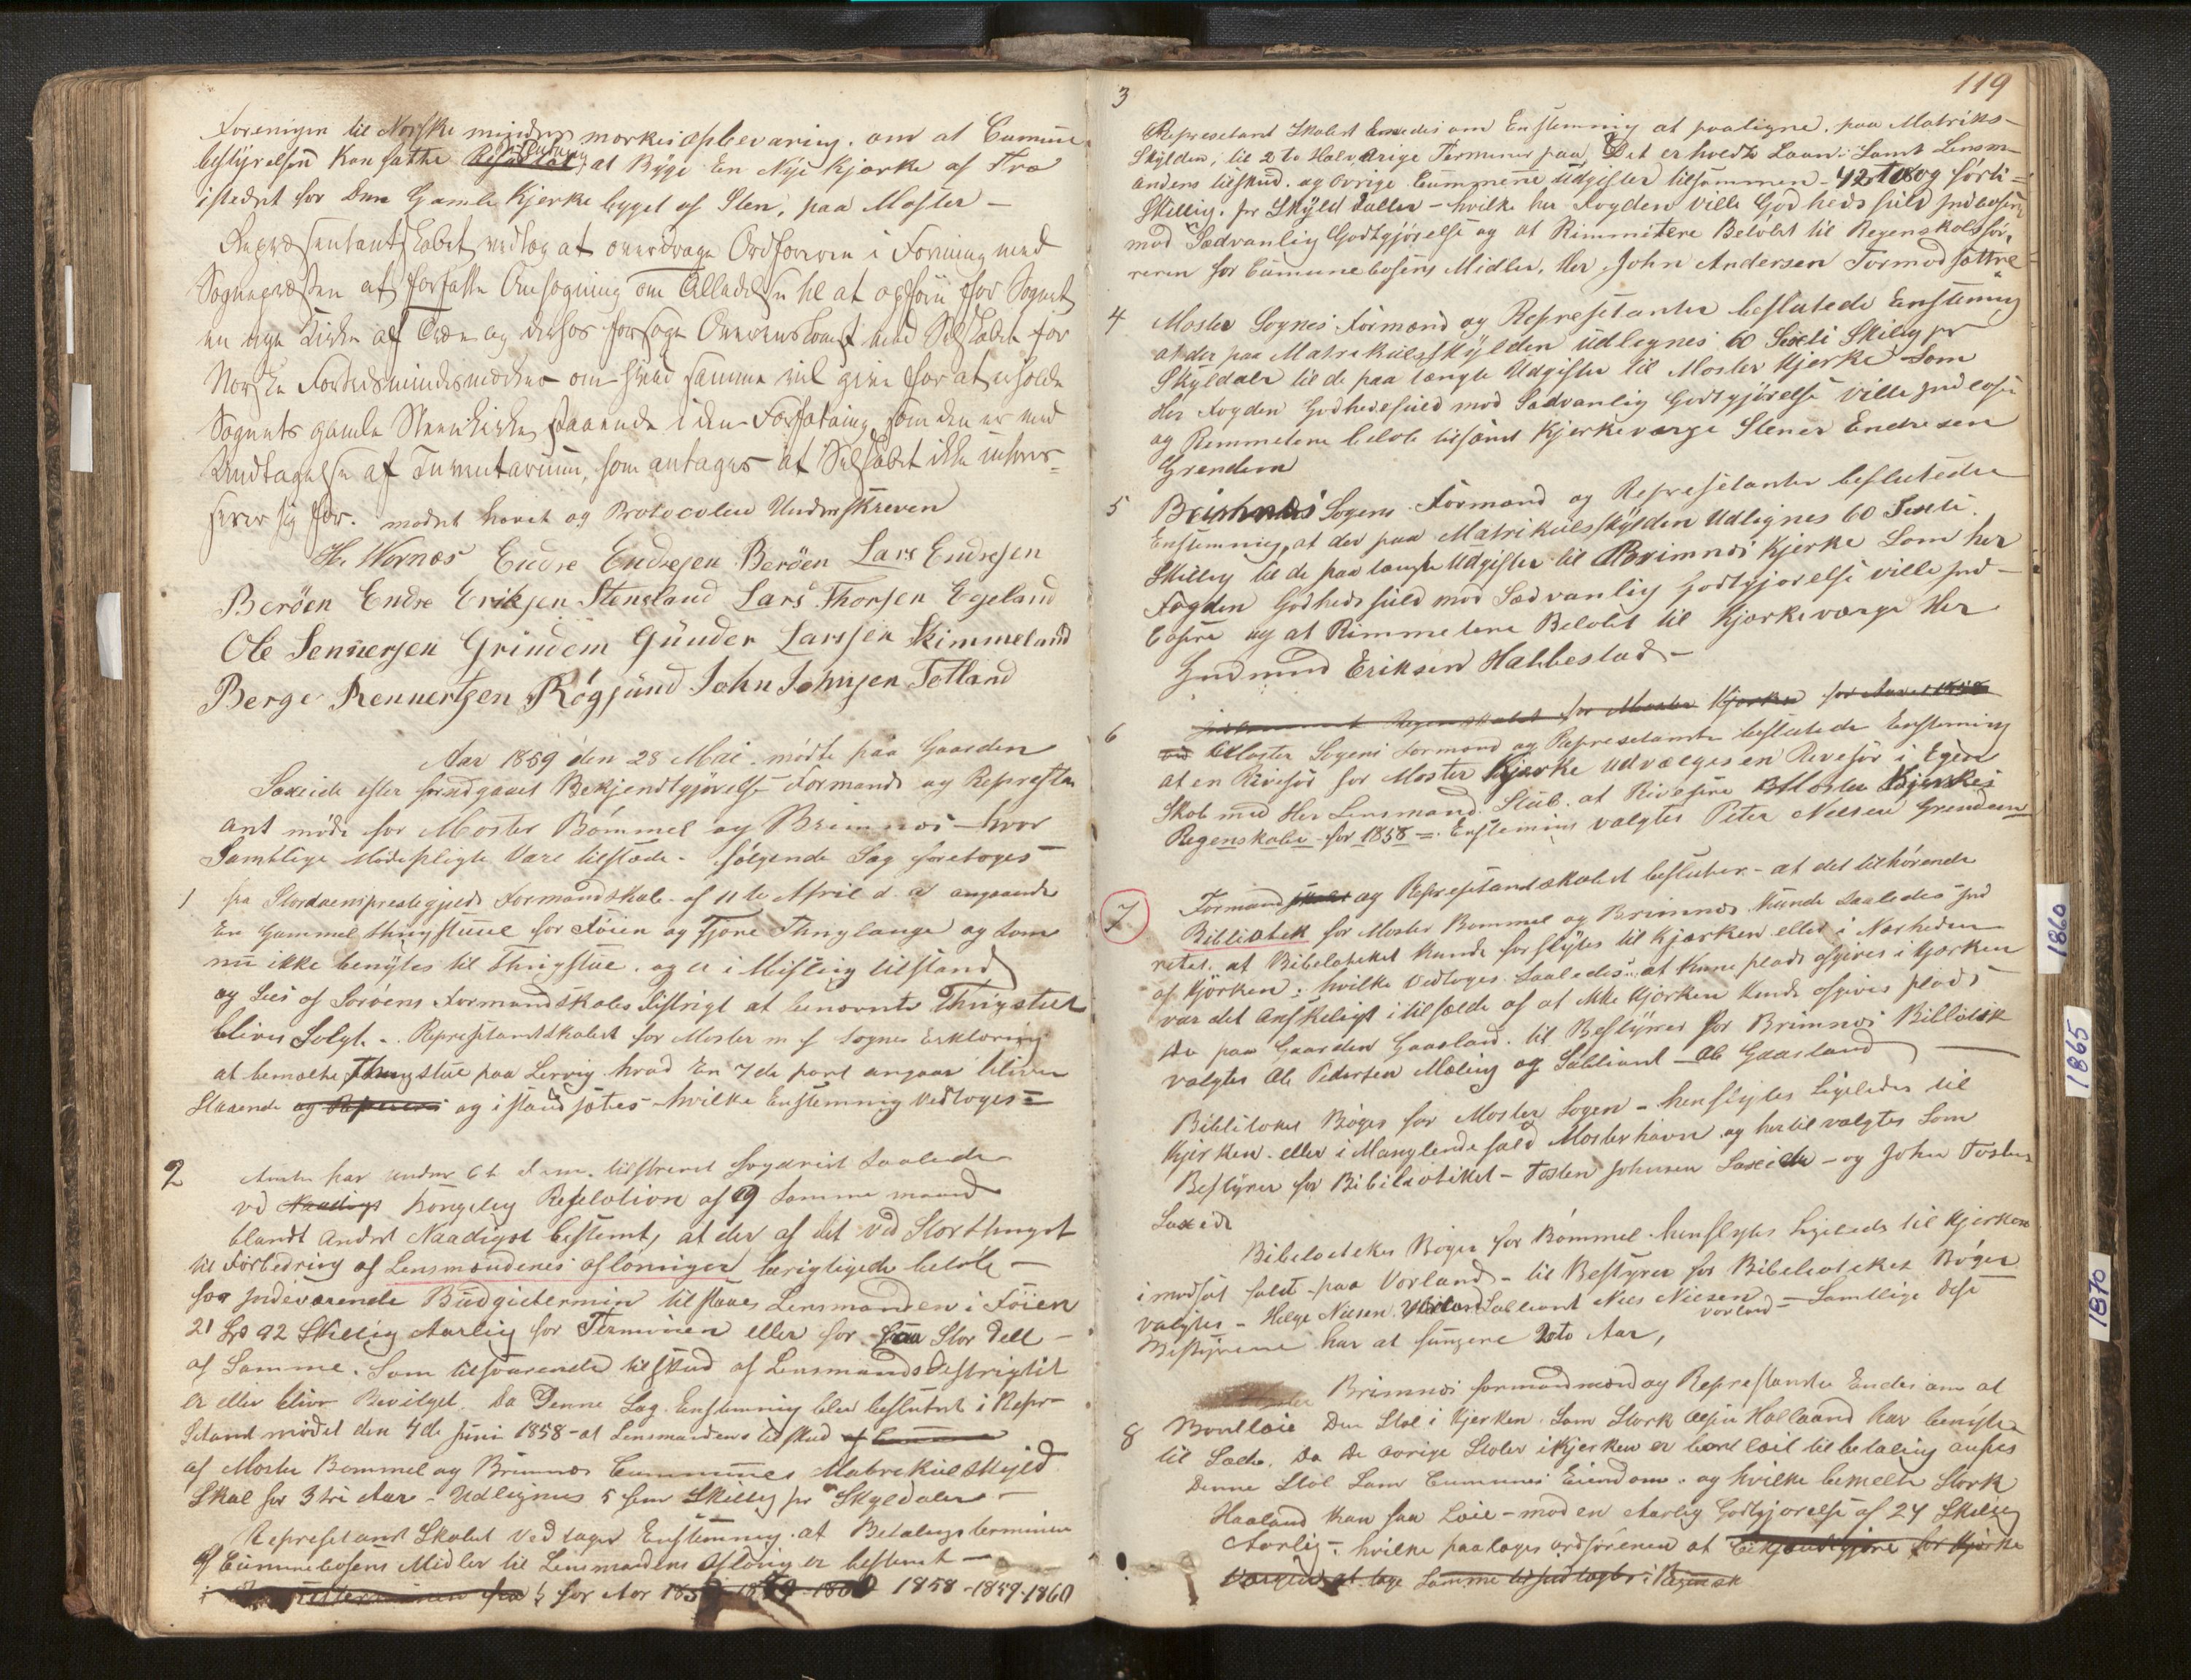 Foreningen til Norske mindes mærkes opbevaring. om at Comune
bestyrelsen kan fatte Beslutning at Byge En Nye Kjærke af Træ
istedet for Den Gamle Kjerke byget af Sten, paa Moster –
Repræsentantskabet vedtog at overdrage Ordføreren i Forening med
Sognepræsten at forfatte Ansøgning om Tilladelse til at opføre for Sognet
en nye Kirke af Træ og derhos forsøge Overenskomst med Selskabet for
Norske Fortidsmindesmærker om hvad samme vil give for at erholde
Sognets gamle Steenkirke staaende i den Forfatning som den er med
Undtagelse af Inventarium, som antages at Selskabet ikke interes=
serer sig for. mødet hævet og Protocolen Underskreven
H. Wernæs Endre Endresen Berøen Lars Endresen
Berøen Endre Eriksen Stensland Lars Thorsen Egeland
Ole Sennersen Grindem Gunder Larssen Skimmeland
Berge Rennertsen Røgsund John Johnsen Totland
Aar 1859 den 28 Mai. mødte paa Gaarden
Sæxeide efter forudgaaet Bekjendtgjørelse Formænds og Represten
ant møde for Moster Bømmel og Brimnes – hvor
Samtlige Mødepligte Vare tilstæde – følgende Sag foretoges
1 fra Stordøens præstegjelds Formandskab. af 11te April d. a. angaaende
En Gammel thingstuue for Føien og Fjære Thinglauge og som
nu ikke benyttes til Thingstue. og er i Mislig tilstand
og Sees af Sørøens Formandskabs Distrigt at benævnte Thingstue
blives Solgt. – Represetantskabet for Moster m f Sogne Erklæring
at bemælte Thingstue paa Lervig hvad En 7de part angaar bliver
Staaende og i stand sættes – hvilke Enstemmig vedtoges =
2 Amtet har under 6te d. m. tilskrevet fogderiet saaledes
ved Naadigst Kongelig Reselution af 9 Samme maaned
blandt andet Naadigst bestemt, at der af det ved Storthinget
til Forbedring af Lensmændenes aflønninger berigtigede beløb –
for indeværende Budgetermin tilstaaes Lensmanden i Føien
21 Sp 92 Skillig Aarlig for Terminen eller for saa Stor Dell –
af Samme. Som tilsvarende tilskud af Lensmands Destrigtet
er eller bliver Bevilget. Da Denne Sag Enstemmig blev besluttet i Repre
setant mødet den 4de Juni 1858 – at Lensmandens tilskud
af Moster Bømmel og Brimnes Cummunes Matrekul Skyld
Skal for 3 tri Aar – Udlignes 5 fem Skillig pr Skyldaler –
Represetant Skabet vedtager Enstemmig. at Betalings terminen
af Cummunekasens Midler til Lensmandens Afløning er bestemt –
for Aar 1858 1859 1860 1858 – 1859 – 1860
119
3 Represetant Skabet Enedes om Enstemmig at paaligne. paa Matriks-
Skylden, til 2te Halv Aarige Terminer paa Det erholdte Laan – Samt Lensm-
andens tilskud. og øvrige Cummunene Udgifter tilsammen – 42 to og førti =
Skillig. pr Skyld daller – hvilke her Fogden ville Godheds fuld Indkasere
mod Sædvanlig Godtgjørelse og at Rimmitere Beløbet til Regenskabsfør,
reren for Cumunekasens Midler, Her John Andersen Tormodsættre
4 Moster Sognes Formænd og Represetanter besluttede Enstemig
at der paa Matrekulsskylden udlignes 60 Sexti Skillig pr
Skyldaler til de paa længte Udgifter til Moster Kjerke Som
Her Fogden Godhedsfuld mod Sædvanlig Godtgjørelse ville Indkase
og Remmetere beløb tilsamt Kjerkeværge Stener Endresen
Grendem
5 Brimnæs Sogens Formænd og Represetanter besluttede
Enstemmig, at der paa Matrikuls Skylden Udlignes 60 Sexti.
Skillig til de paa længte Udgifter til Brimnes Kjerke Som her
Fogden Godheds fuld mod Sædvanlig Godtgjørelse ville Ind –
kasere og at Rimmetere Beløbet til Kjærkeværge Her
Gudmund Eriksen Habbestad –
Regenskabet for Moster Kjærke for Aaret 1858
6 ved Moster Sogens Formænd og Represetanter besluttede Enstemmig
at en Revisør for Moster Kjærke Udvælges en Revesør i Egen
Skab med Her Lensmand Stub. at Rivesere Moster Kjærkes
Regenskaber for 1858 =. Enstemmig valgtes Peter Nelsen Grendem
7 Formandskabet og Represetandskabet besluter – at det tilhørende
Bibliotek for Moster Bommel og Brimnes Kunde saaledes Ind
retet. at Bibeloteket Kunde forflyttes til Kjærken eller i Nærheden
af Kjærken; hvilke vedtoges Saaledes at Kunne plads afgives i Kjærken
var det Ønskeligt i tilfælde af at ikke Kjærken Kunde afgives plads
da paa Gaarden Gaasland. til Bestyrer for Brimnes Billotek
valgtes Ole Pedersen Mæling og Subleant – Ole Gaasland
Biblitokes Bøger for Moster Sogen – henflyttes Ligeledes til
Kjerken. eller i Manglende fald Mosterhavn og her til valgtes Som
Bestyrer for Bibiloteket – Tosten Johnsen Sæxeide – og John Tostens
Sæxede
Bibeloteks Bøger for Bømmel – henflyttes ligeleds til Kjerken
i modsat fald paa Vorland – til Bestyrer for Bibeloteket Bøger
valgtes – Helge Nielsen Vorland Subleant Niels Nielsen vorland – Samtlige Disse
Bestyrene har at fungere 2 to Aar,
8 Brimnes formandmænd og Represtanter Enedes om at
Bortleie Den Stol i Kjerken. Som Stork Olsen Haalland har benyttet
til Sæde. Da De øvrige Stoler i Kjerken er bort leit til betaling anses
Denne Stol Som Cumunes Eiendom. og hvilke bemelte Stork
Haaland Kan faa Leie – mod en Aarlig Godtgjørelse af 24 Skilling
Aarlig – hvilke paalages ordførenen at bekjendtgjøre for Kjærke
værgen at tage Samme til Indtægt i Regensk
1860
1865
1870